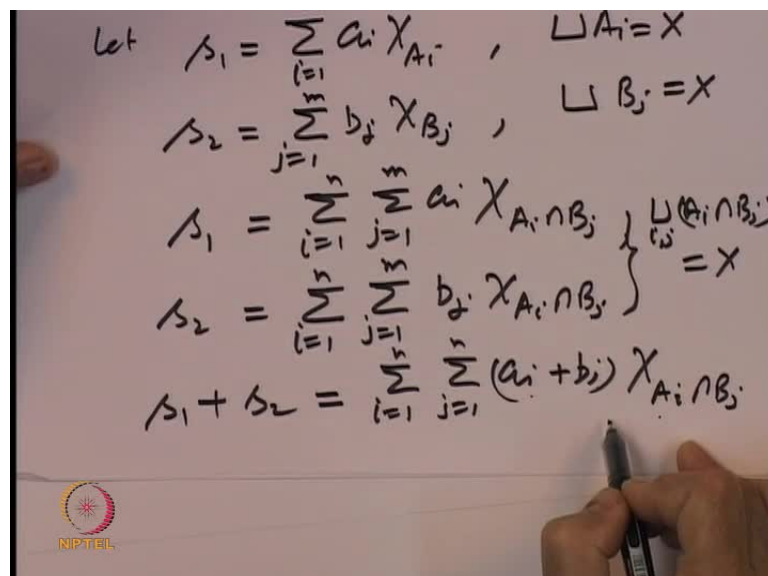 Let s₁ = ∑_{i=1} aᵢ χ_{Aᵢ} , ⊔ Aᵢ = X
s₂ = ∑_{j=1}^{m} bⱼ χ_{Bⱼ} , ⊔ Bⱼ = X
s₁ = ∑_{i=1}^{n} ∑_{j=1}^{m} aᵢ χ_{Aᵢ∩Bⱼ} } ⊔_{i,j} (Aᵢ∩Bⱼ)
s₂ = ∑_{i=1}^{n} ∑_{j=1}^{m} bⱼ χ_{Aᵢ∩Bⱼ} } = X
s₁ + s₂ = ∑_{i=1}^{n} ∑_{j=1}^{n} (aᵢ + bⱼ) χ_{Aᵢ∩Bⱼ}
NPTEL